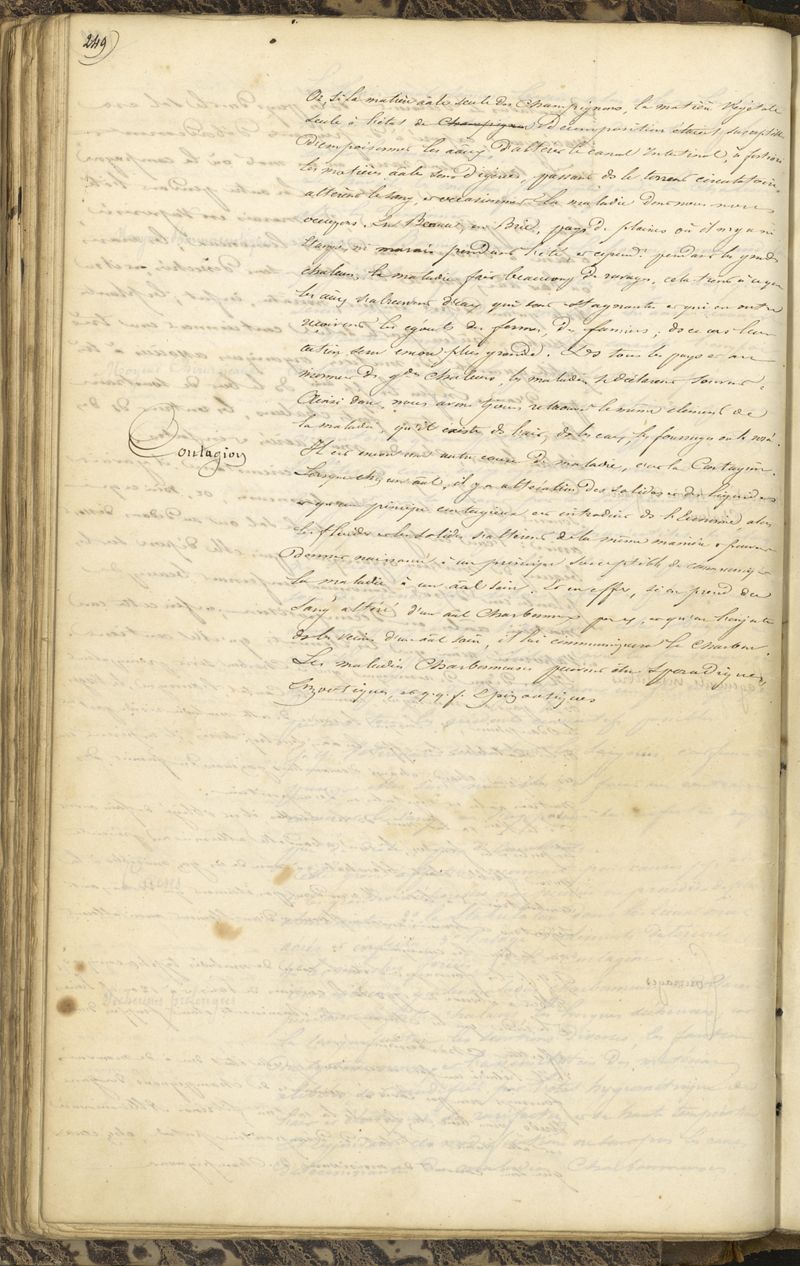 249
Or, si la matière aale seule des Champignons, la matière végétale
seule à l'état de Champignon décomposition étaient susceptible
d'empoisonner les aaux, d'altérer le canal intestinal, à fortiori
les matières aale sont digérées, passant ds le torrent circulatoire
altèrent le sang, et occasionnent la maladie dont nous nous
occupons. En Beauce, en Brie, pays de plaines où il n'y a ni
étangs, ni marais pendant l'été, et cepend. pendant les grandes
chaleurs, la maladie fait beaucoup de ravages, cela tient à ce que
les aaux s'abreuvent d'eaux qui sont stagnantes et qui en outre
reçoivent les égouts des fermes, de fumiers, ds ce cas leur
action sera encore plus grande. Ds tous les pays et au
moment des gdes chaleurs, les maladies se déclarent souvent.
Ainsi donc, nous avons tjours retrouvé le même élément de
la maladie, qu'il existe ds l'air, ds les eaux, les fourrages
Contagion
Il est encore une autre cause de maladie, c'est la Contagion.
Lorsque chez un aal, il y a altération des solides et des liquides
et qu'un principe contagieux est introduit ds l'économie, alors
les fluides et les solides s'altèrent de la même manière et peuvent
donner naissance à un principe susceptible de communiquer
la maladie à un aal sain. Et en effet, si on prend du
sang altéré d'un aal Charbonneux par ex, et qu'on l'injecte
ds les veines d'un aal sain, il lui communiquera le Charbon.
Les maladies Charbonneuses peuvent être Sporadiques,
Enzootiques, et q.q.f. Epizootiques